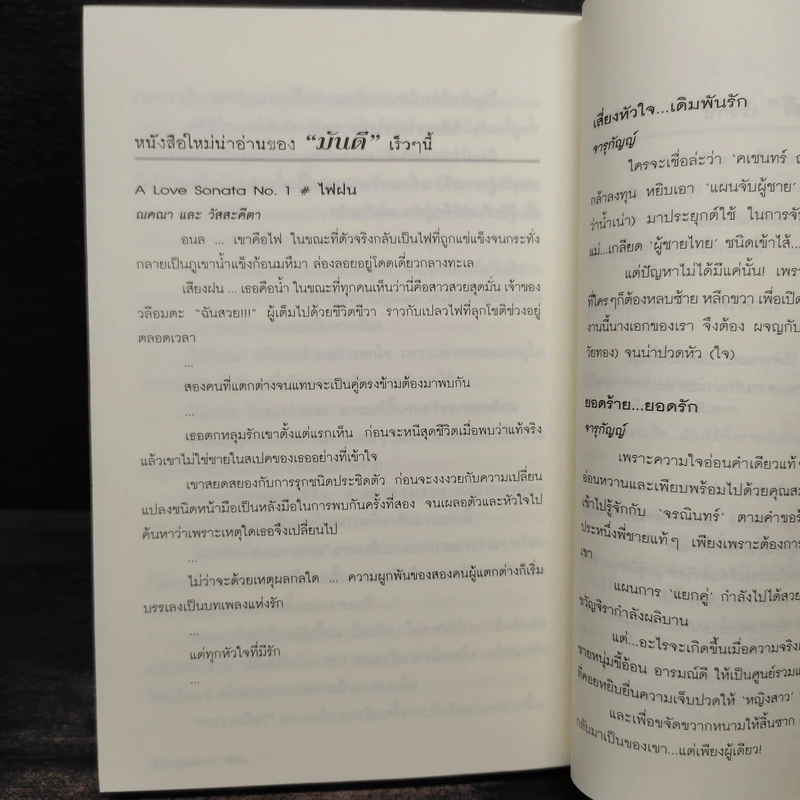 หนังสือใหม่น่าอ่านของ “มันดี” เร็วๆนี้
A Love Sonata No. 1 # ไฟฝน
ณคณา และ วัสสะคีตา
อนล ... เขาคือไฟ ในขณะที่ตัวจริงกลับเป็นไฟที่ถูกแช่แข็งจนกระทั่ง
กลายเป็นภูเขาน้ำแข็งก้อนมหึมา ล่องลอยอยู่โดดเดี่ยวกลางทะเล
เสียงฝน ... เธอคือน้ำ ในขณะที่ทุกคนเห็นว่านี่คือสาวสวยสุดมั่น เจ้าของ
วลีอมตะ “ฉันสวย!!!” ผู้เต็มไปด้วยชีวิตชีวา ราวกับเปลวไฟที่ลุกโชติช่วงอยู่
ตลอดเวลา
...
สองคนที่แตกต่างจนแทบจะเป็นคู่ตรงข้ามต้องมาพบกัน
...
เธอตกหลุมรักเขาตั้งแต่แรกเห็น ก่อนจะหนีสุดชีวิตเมื่อพบว่าแท้จริง
แล้วเขาไม่ใช่ชายในสเปคของเธออย่างที่เข้าใจ
เขาสยดสยองกับการรุกชนิดประชิดตัว ก่อนจะงงงวยกับความเปลี่ยน
แปลงชนิดหน้ามือเป็นหลังมือในการพบกันครั้งที่สอง จนเผลอตัวและหัวใจไป
ค้นหาว่าเพราะเหตุใดเธอจึงเปลี่ยนไป
...
ไม่ว่าจะด้วยเหตุผลกลใด ... ความผูกพันของสองคนผู้แตกต่างก็เริ่ม
บรรเลงเป็นบทเพลงแห่งรัก
...
แด่ทุกหัวใจที่มีรัก
...
เสี่ยงหัวใจ...เดิมพันรัก
จารุกัญญ์
ใครจะเชื่อล่ะว่า ‘คเชนทร์
กล้าลงทุน หยิบเอา ‘แผนจับผู้ชาย’
ว่าน้ำเน่า) มาประยุกต์ใช้ ในการจับ
แม่...เกลียด ‘ผู้ชายไทย’ ชนิดเข้าไส้...
แต่ปัญหาไม่ได้มีแค่นั้น! เพรา
ที่ใครๆก็ต้องหลบซ้าย หลีกขวา เพื่อเปิด
งานนี้นางเอกของเรา จึงต้อง ผจญกับ
วัยทอง) จนน่าปวดหัว (ใจ)
ยอดร้าย...ยอดรัก
จารุกัญญ์
เพราะความใจอ่อนคำเดียวแท้ๆ
อ่อนหวานและเพียบพร้อมไปด้วยคุณส
เข้าไปรู้จักกับ ‘จรณินทร์’ ตามคำขอร้
ประหนึ่งพี่ชายแท้ๆ เพียงเพราะต้องการ
เขา
แผนการ “แยกคู่” กำลังไปได้สวย
ขวัญจิรากำลังผลิบาน
แต่...อะไรจะเกิดขึ้นเมื่อความจริงเ
ชายหนุ่มขี้อ้อน อารมณ์ดี ให้เป็นศูนย์รวมแ
ที่คอยหยิบยื่นความเจ็บปวดให้ ‘หญิงสาว’
และเพื่อขจัดขวากหนามให้สิ้นซาก
กลับมาเป็นของเขา...แต่เพียงผู้เดียว!